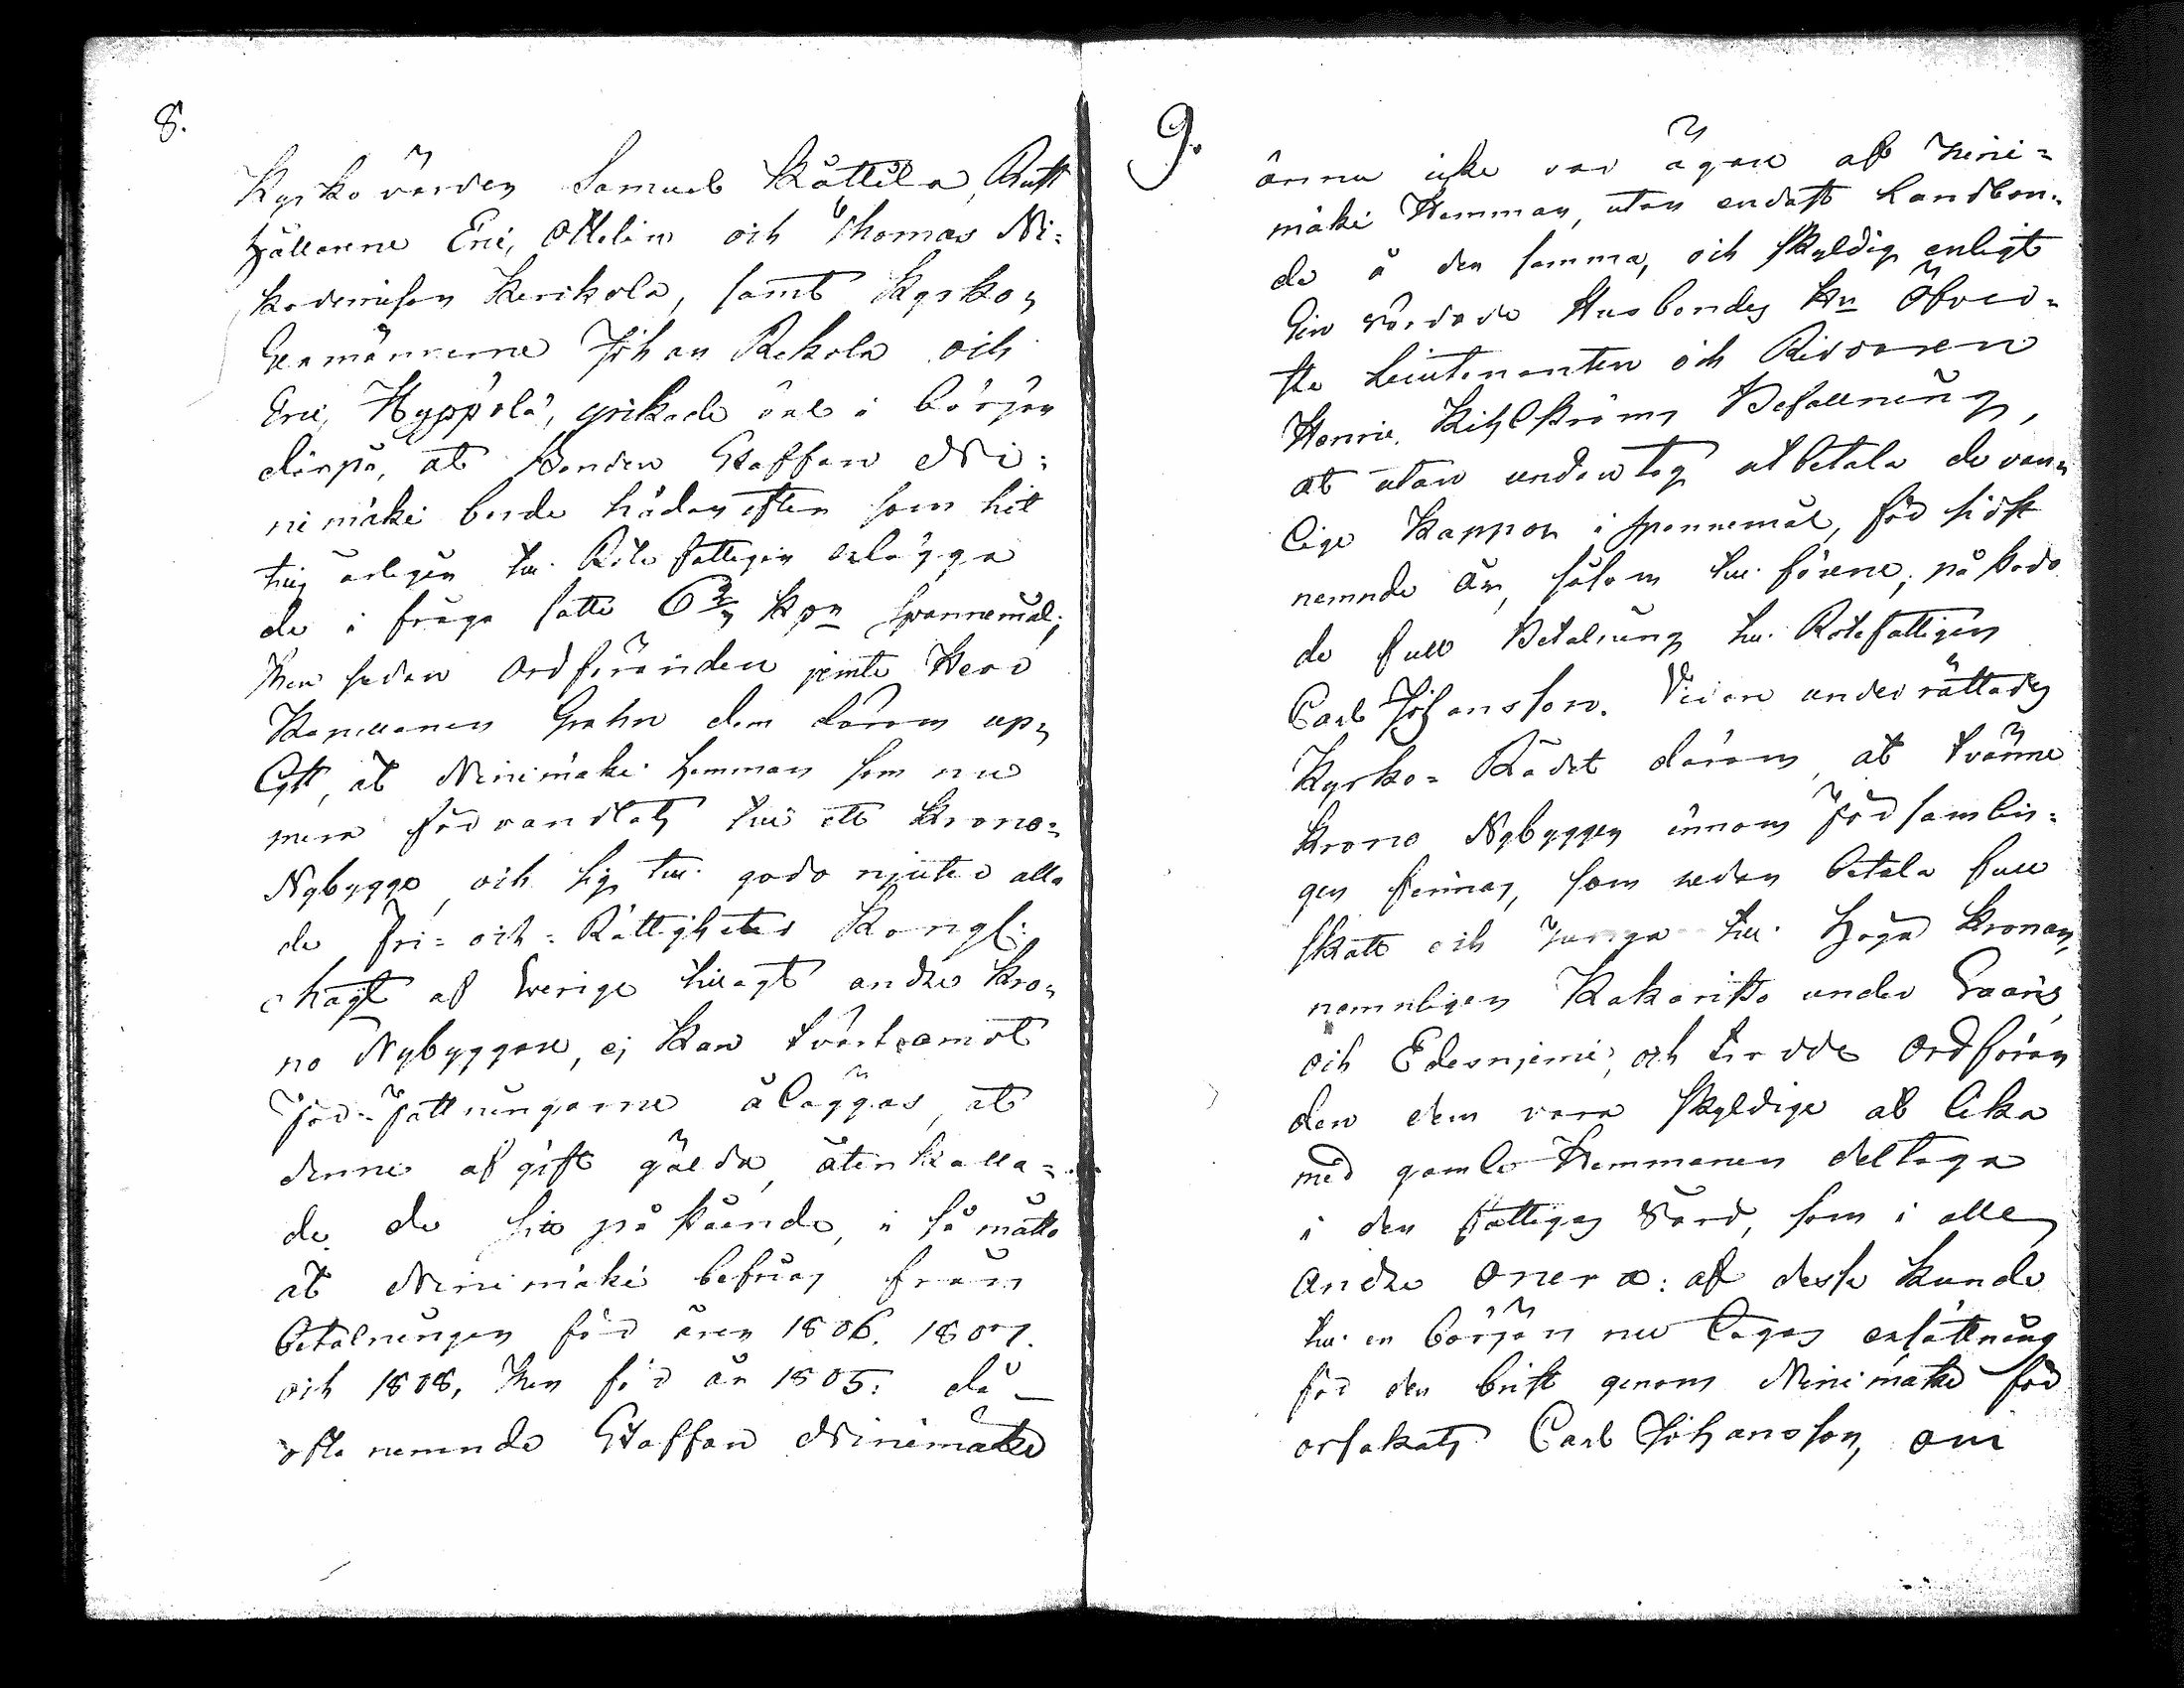 8.
Kyrkovärden Samuel Kättilä, Rust
hållarne Eric Ollelin och Thomas Ni-
kodemisson Kerikola, samt Kyrko-
Sexmännerne Johan Rekola och
Eric Hyppölä, yrkade väl i början
därpå, at Bonden Staffan Ni-
nimäki borde hädanefter som hit
tils årligen til Rote fattigen erlägga
de i fråga satte 6 2/7 kpr spannemål;
Men sedan Ordföranden jemte Herr
Kapellanen Grahn dem därom up-
lyst, at Ninimäki hemman som nu
mera förvandlats til ett Krono-
Nybygge, och sig til godo njuter alla
de Fri- och Rättigheter Kongl:
Majt af Sverige tillagt andre Kro-
no Nybyggare, ej kan tvärtemot
Författningarne åläggas, at
denne afgift gälda, återkalla-
de de sit påstående, i så måtto
at Ninimäki befrias från
betalningen för åren 1806. 1807.
och 1808, Men för år 1805: då
ofta nemnde Staffan Ninimäki
9.
ännu icke var ägare af Nini-
mäki Hemman, utan endast Landbon-
de å den samma, och skyldig enligt
Sin värde Husbondes Hr Öfver-
ste Lieutenanten och Riddaren
Henric Kihlströms Befallning,
at utan undantag utbetala de van-
lige Kappor i spannemål, för sidst
nemnde år, såsom til förene, påstod
de full Betalning til Rotefattigen
Carl Johansson. Vidare underrättades
Kyrko-Rådet därom, at tvänne
Krono Nybyggen innom Församlin-
gen finnas, som redan betala full
skatt och tunga til Höga Kronan,
nemnligen Kakaristo under
och Edesniemi, och trodde Ordföran
den dem vara skyldige at lika
med gamle Hemmanen deltaga
i den fattigas vård, som i alle
andre onera: af desse kunde
til en början nu tagas ersättning
för den brist genom Ninimäki för
orsakats Carl Johansson, om